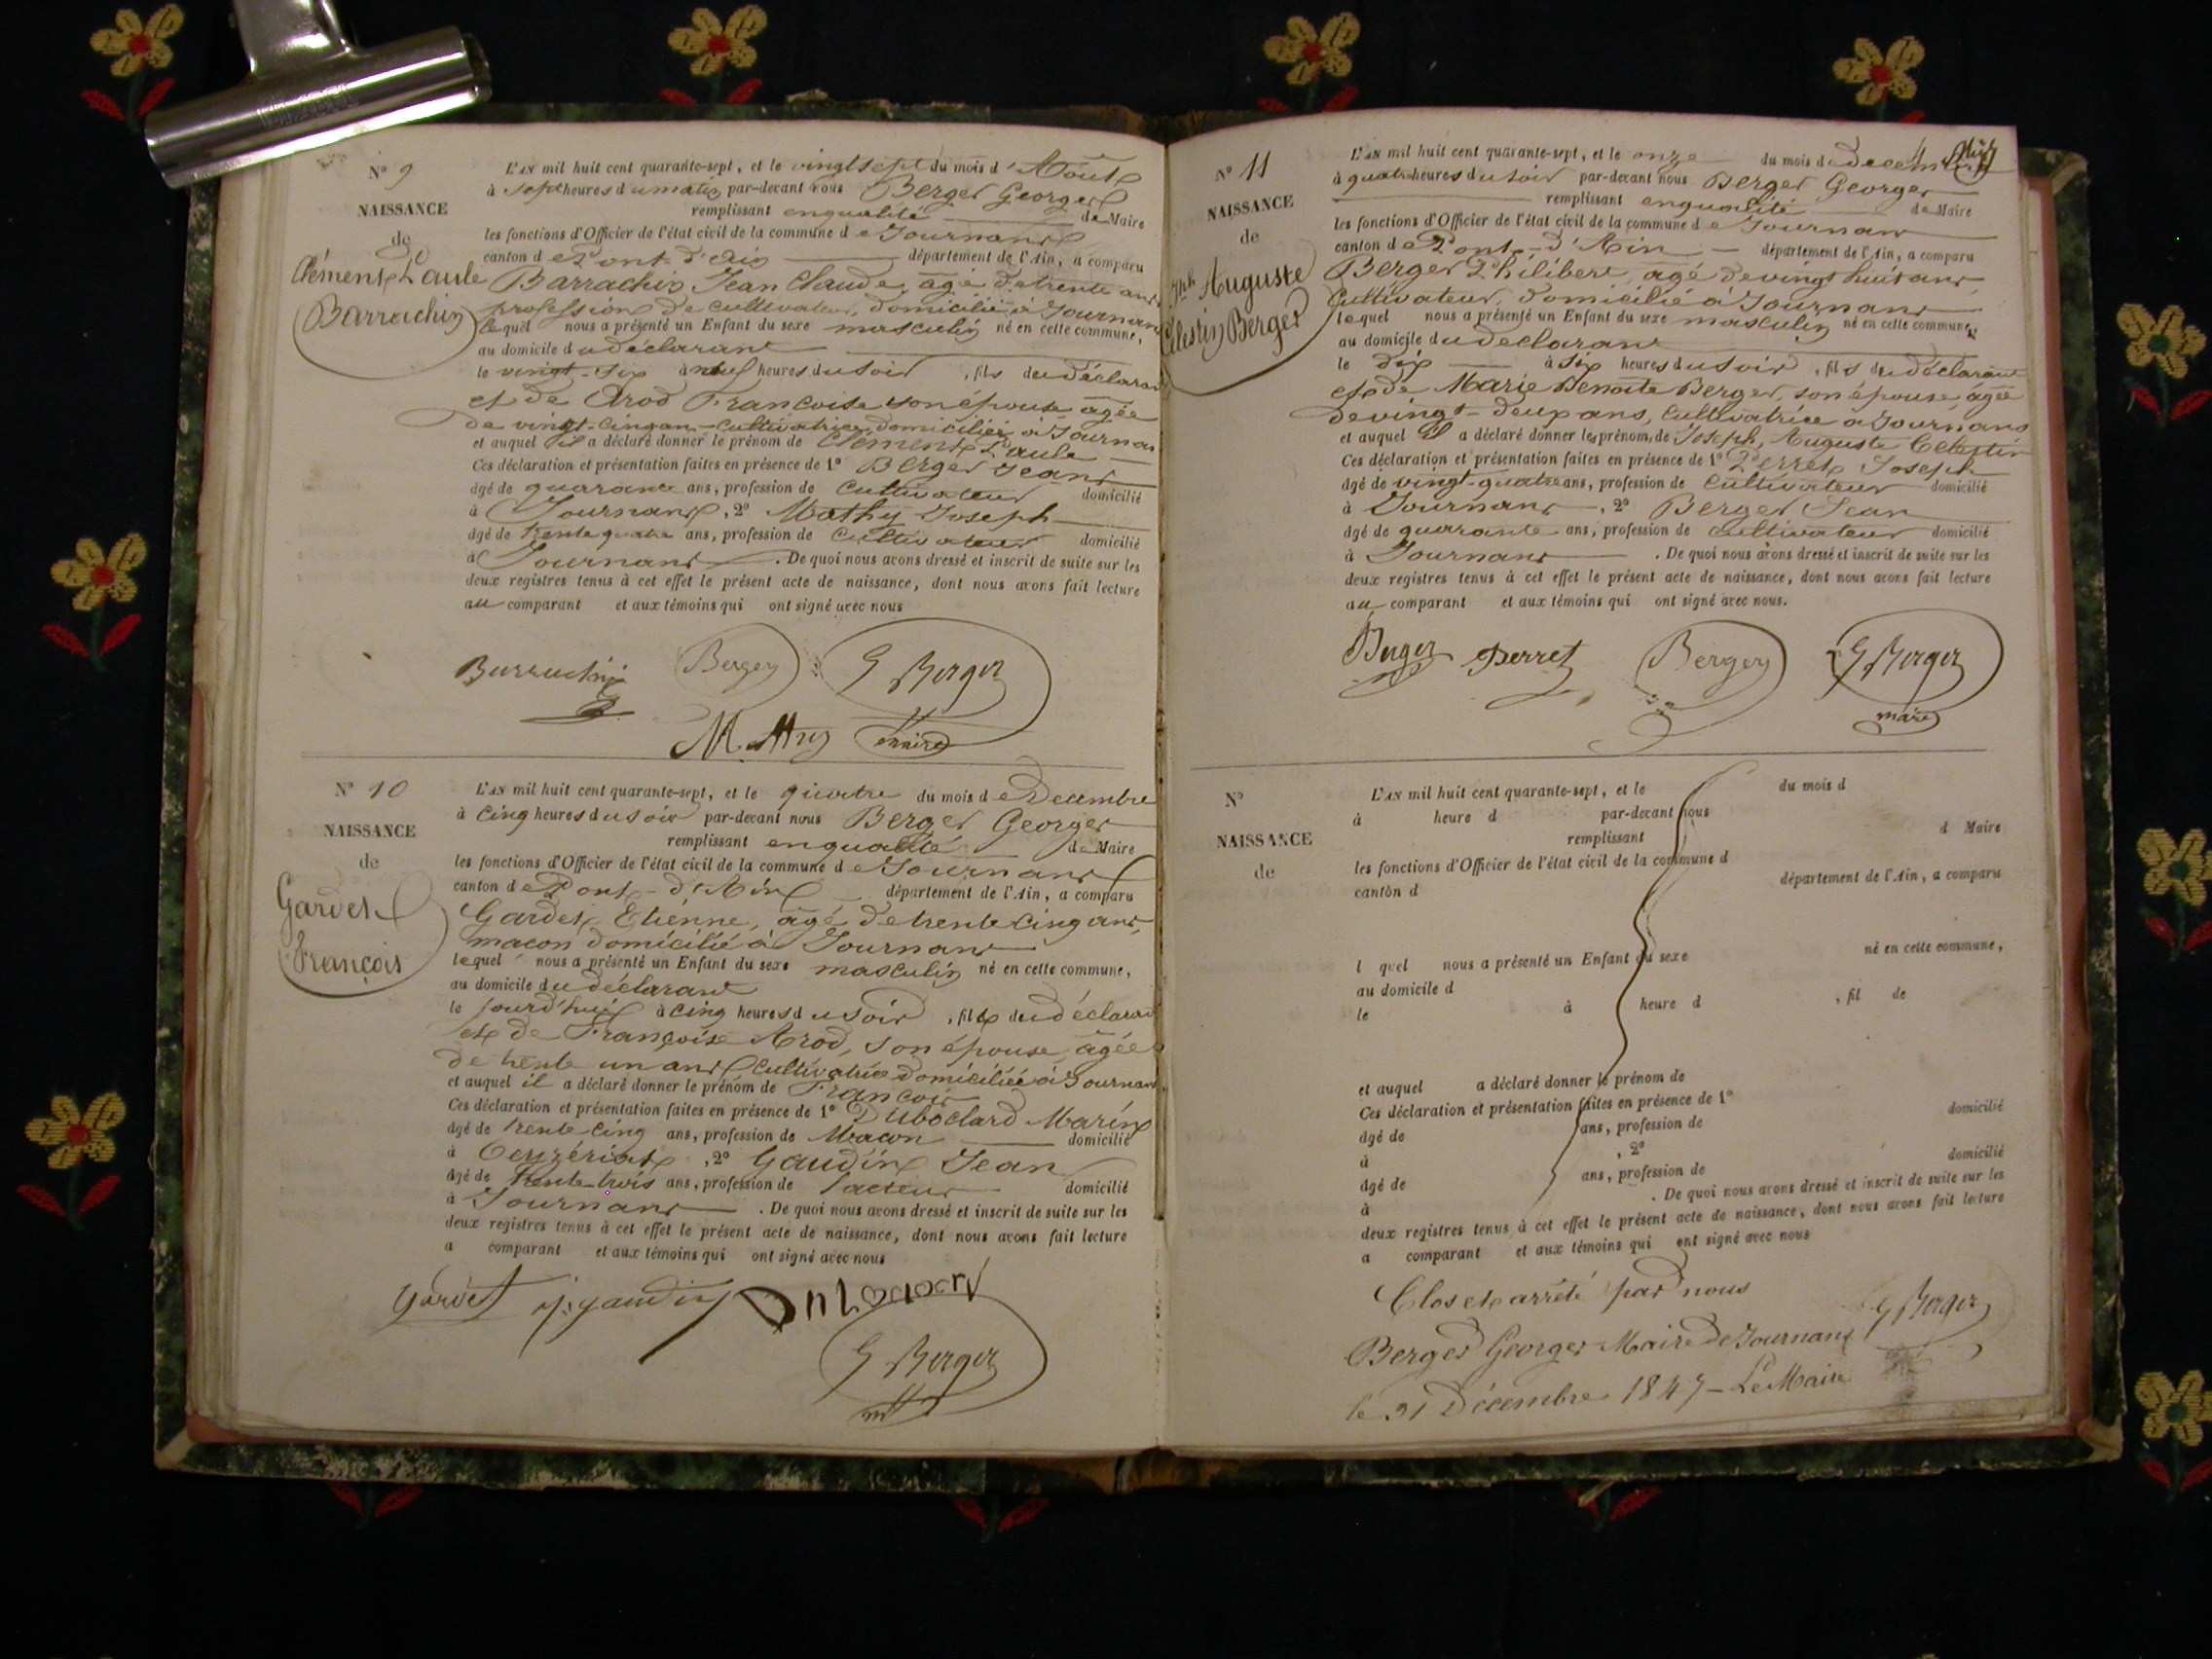 N° 9
NAISSANCE
de
Clément Paule
Barrachin
L'AN mil huit cent quarante-sept, et le vingt sept du mois d'Aout
à sept heures du matin par-devant nous Berger Georges
remplissant en qualité de Maire
les fonctions d'Officier de l'état civil de la commune de Journans
canton de Pont-d'ain département de l'Ain, a comparu
Barrachin Jean Claude, âgé de trente ans
profession de cultivateur, domicilié à Journans
lequel nous a présenté un Enfant du sexe masculin né en cette commune,
au domicile du déclarant
le vingt-six à neuf heures du soir, fils du déclarant
et de Arod Françoise son épouse âgée
de vingt-cinq ans cultivatrice domiciliée à Journans
et auquel il a déclaré donner le prénom de Clément Paule
Ces déclaration et présentation faites en présence de 1° Berger Jean
âgé de quarante ans, profession de cultivateur domicilié
à Journans, 2° Mathy Joseph
âgé de trente quatre ans, profession de cultivateur domicilié
à Journans. De quoi nous avons dressé et inscrit de suite sur les
deux registres tenus à cet effet le présent acte de naissance, dont nous avons fait lecture
au comparant et aux témoins qui ont signé avec nous
Barrachin Berger G Berger
Mathy maire
N° 10
NAISSANCE
de
Gardet
François
L'AN mil huit cent quarante-sept, et le quatre du mois de Decembre
à cinq heures du soir par-devant nous Berger Georges
remplissant en qualité de Maire
les fonctions d'Officier de l'état civil de la commune de Journans
canton de Pont-d'Ain département de l'Ain, a comparu
Gardet Etienne, âgé de trente cinq ans,
macon domicilié à Journans
lequel nous a présenté un Enfant du sexe masculin né en cette commune,
au domicile du déclarant
le jourd'hui à cinq heures du soir, fils du déclarant
et de Françoise Arod, son épouse, âgée
de trente un ans cultivatrice domiciliée à Journans
et auquel il a déclaré donner le prénom de François
Ces déclaration et présentation faites en présence de 1° Duboclard Marin
âgé de trente cinq ans, profession de Macon domicilié
à Ceyzériat, 2° Gaudin Jean
âgé de trente trois ans, profession de facteur domicilié
à Journans. De quoi nous avons dressé et inscrit de suite sur les
deux registres tenus à cet effet le présent acte de naissance, dont nous avons fait lecture
a comparant et aux témoins qui ont signé avec nous
Gardet j. gaudin Duboclard
G Berger
N° 11
NAISSANCE
de
Jph Auguste
Célestin Berger
L'AN mil huit cent quarante-sept, et le onze du mois de decembre
à quatre heures du soir par-devant nous Berger Georges
remplissant en qualité de Maire
les fonctions d'Officier de l'état civil de la commune de Journans
canton de Pont-d'Ain département de l'Ain, a comparu
Berger Philibert, âgé de vingt huit ans,
Cultivateur, domicilié à Journans
lequel nous a présenté un Enfant du sexe masculin né en cette commune,
au domicile du declarant
le dix à six heures du soir, fils du déclarant
et de Marie Benoite Berger, son épouse, âgée
de vingt-deux ans, cultivatrice à Journans
et auquel il a déclaré donner les prénom, de Joseph, Auguste Celestin
Ces déclaration et présentation faites en présence de 1° Perret Joseph
âgé de vingt-quatre ans, profession de cultivateur domicilié
à Journans, 2° Berger Jean
âgé de quarante ans, profession de cultivateur domicilié
à Journans. De quoi nous avons dressé et inscrit de suite sur les
deux registres tenus à cet effet le présent acte de naissance, dont nous avons fait lecture
au comparant et aux témoins qui ont signé avec nous.
Berger Perret Berger G Berger
maire
N°
NAISSANCE
de
L'AN mil huit cent quarante-sept, et le du mois d
à heure d par-devant nous
remplissant d Maire
les fonctions d'Officier de l'état civil de la commune d
canton d département de l'Ain, a comparu
l quel nous a présenté un Enfant du sexe né en cette commune,
au domicile d
le à heure d, fil de
et auquel a déclaré donner le prénom de
Ces déclaration et présentation faites en présence de 1°
âgé de ans, profession de domicilié
à, 2°
âgé de ans, profession de domicilié
à. De quoi nous avons dressé et inscrit de suite sur les
deux registres tenus à cet effet le présent acte de naissance, dont nous avons fait lecture
a comparant et aux témoins qui ont signé avec nous
Clos et arrêté par nous
Berger Georges Maire de Journans G Berger
le 31 Décembre 1847 - Le Maire